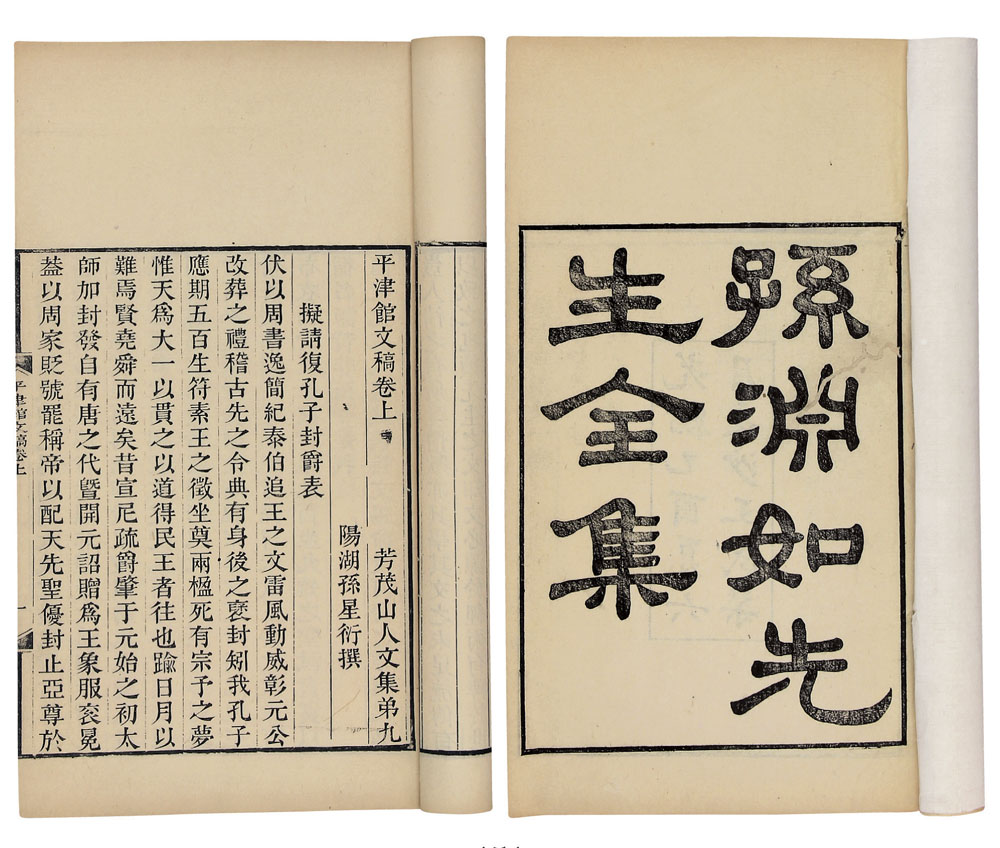 孫淵如先
生全集
平津館文稿卷上 芳茂山人文集弟九
陽湖孫星衍撰
擬請復孔子封爵表
伏以周書逸簡紀泰伯追王之文雷風動威彰元公
改葬之禮稽古先之令典有身後之襃封矧我孔子
應期五百生符素王之徵坐奠兩楹死有宗予之夢
惟天爲大一以貫之以道得民王者往也踰日月以
難焉賢堯舜而遠矣昔宣尼疏爵肇于元始之初太
師加封發自有唐之代曁開元詔贈爲王象服衮冕
葢以周家貶號罷稱帝以配天先聖優封止亞尊於
平津館文稿卷上
一